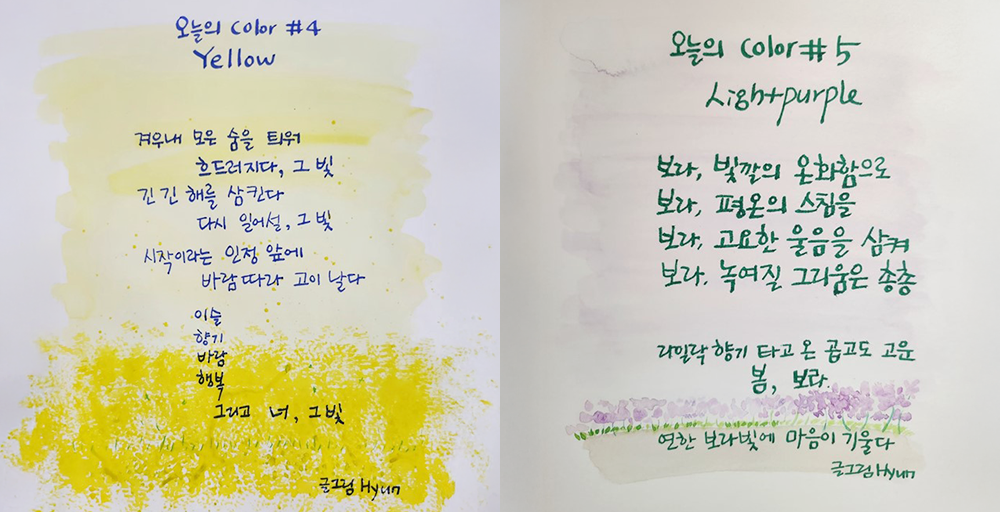 오늘의 color #4
Yellow
겨우내 모은 숨을 틔워
흐드러지다, 그 빛
긴 긴 해를 삼킨다
다시 일어설, 그 빛
시작이라는 인정 앞에
바람따라 고이 날다
이슬
향기
바람
행복
그리고 너, 그 빛
글그림 Hyun
오늘의 color #5
Lightpurple
보라, 빛깔의 온화함으로
보라, 평온의 스침을
보라, 고요한 울음을 삼켜
보라, 녹여질 그리움은 총총
라일락 향기 타고 온 곱고도 고운
봄, 보라.
연한 보라빛에 마음이 기울다
글그림 Hyun